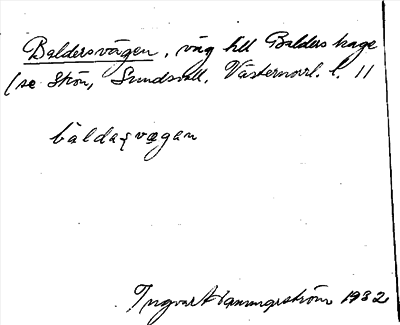 Baldersvägen, väg till Balders hage
(se Skön, Sundsvall, Västernorrl. l. 11
bàldaʂvægan
Ingvar Hammarström 1932